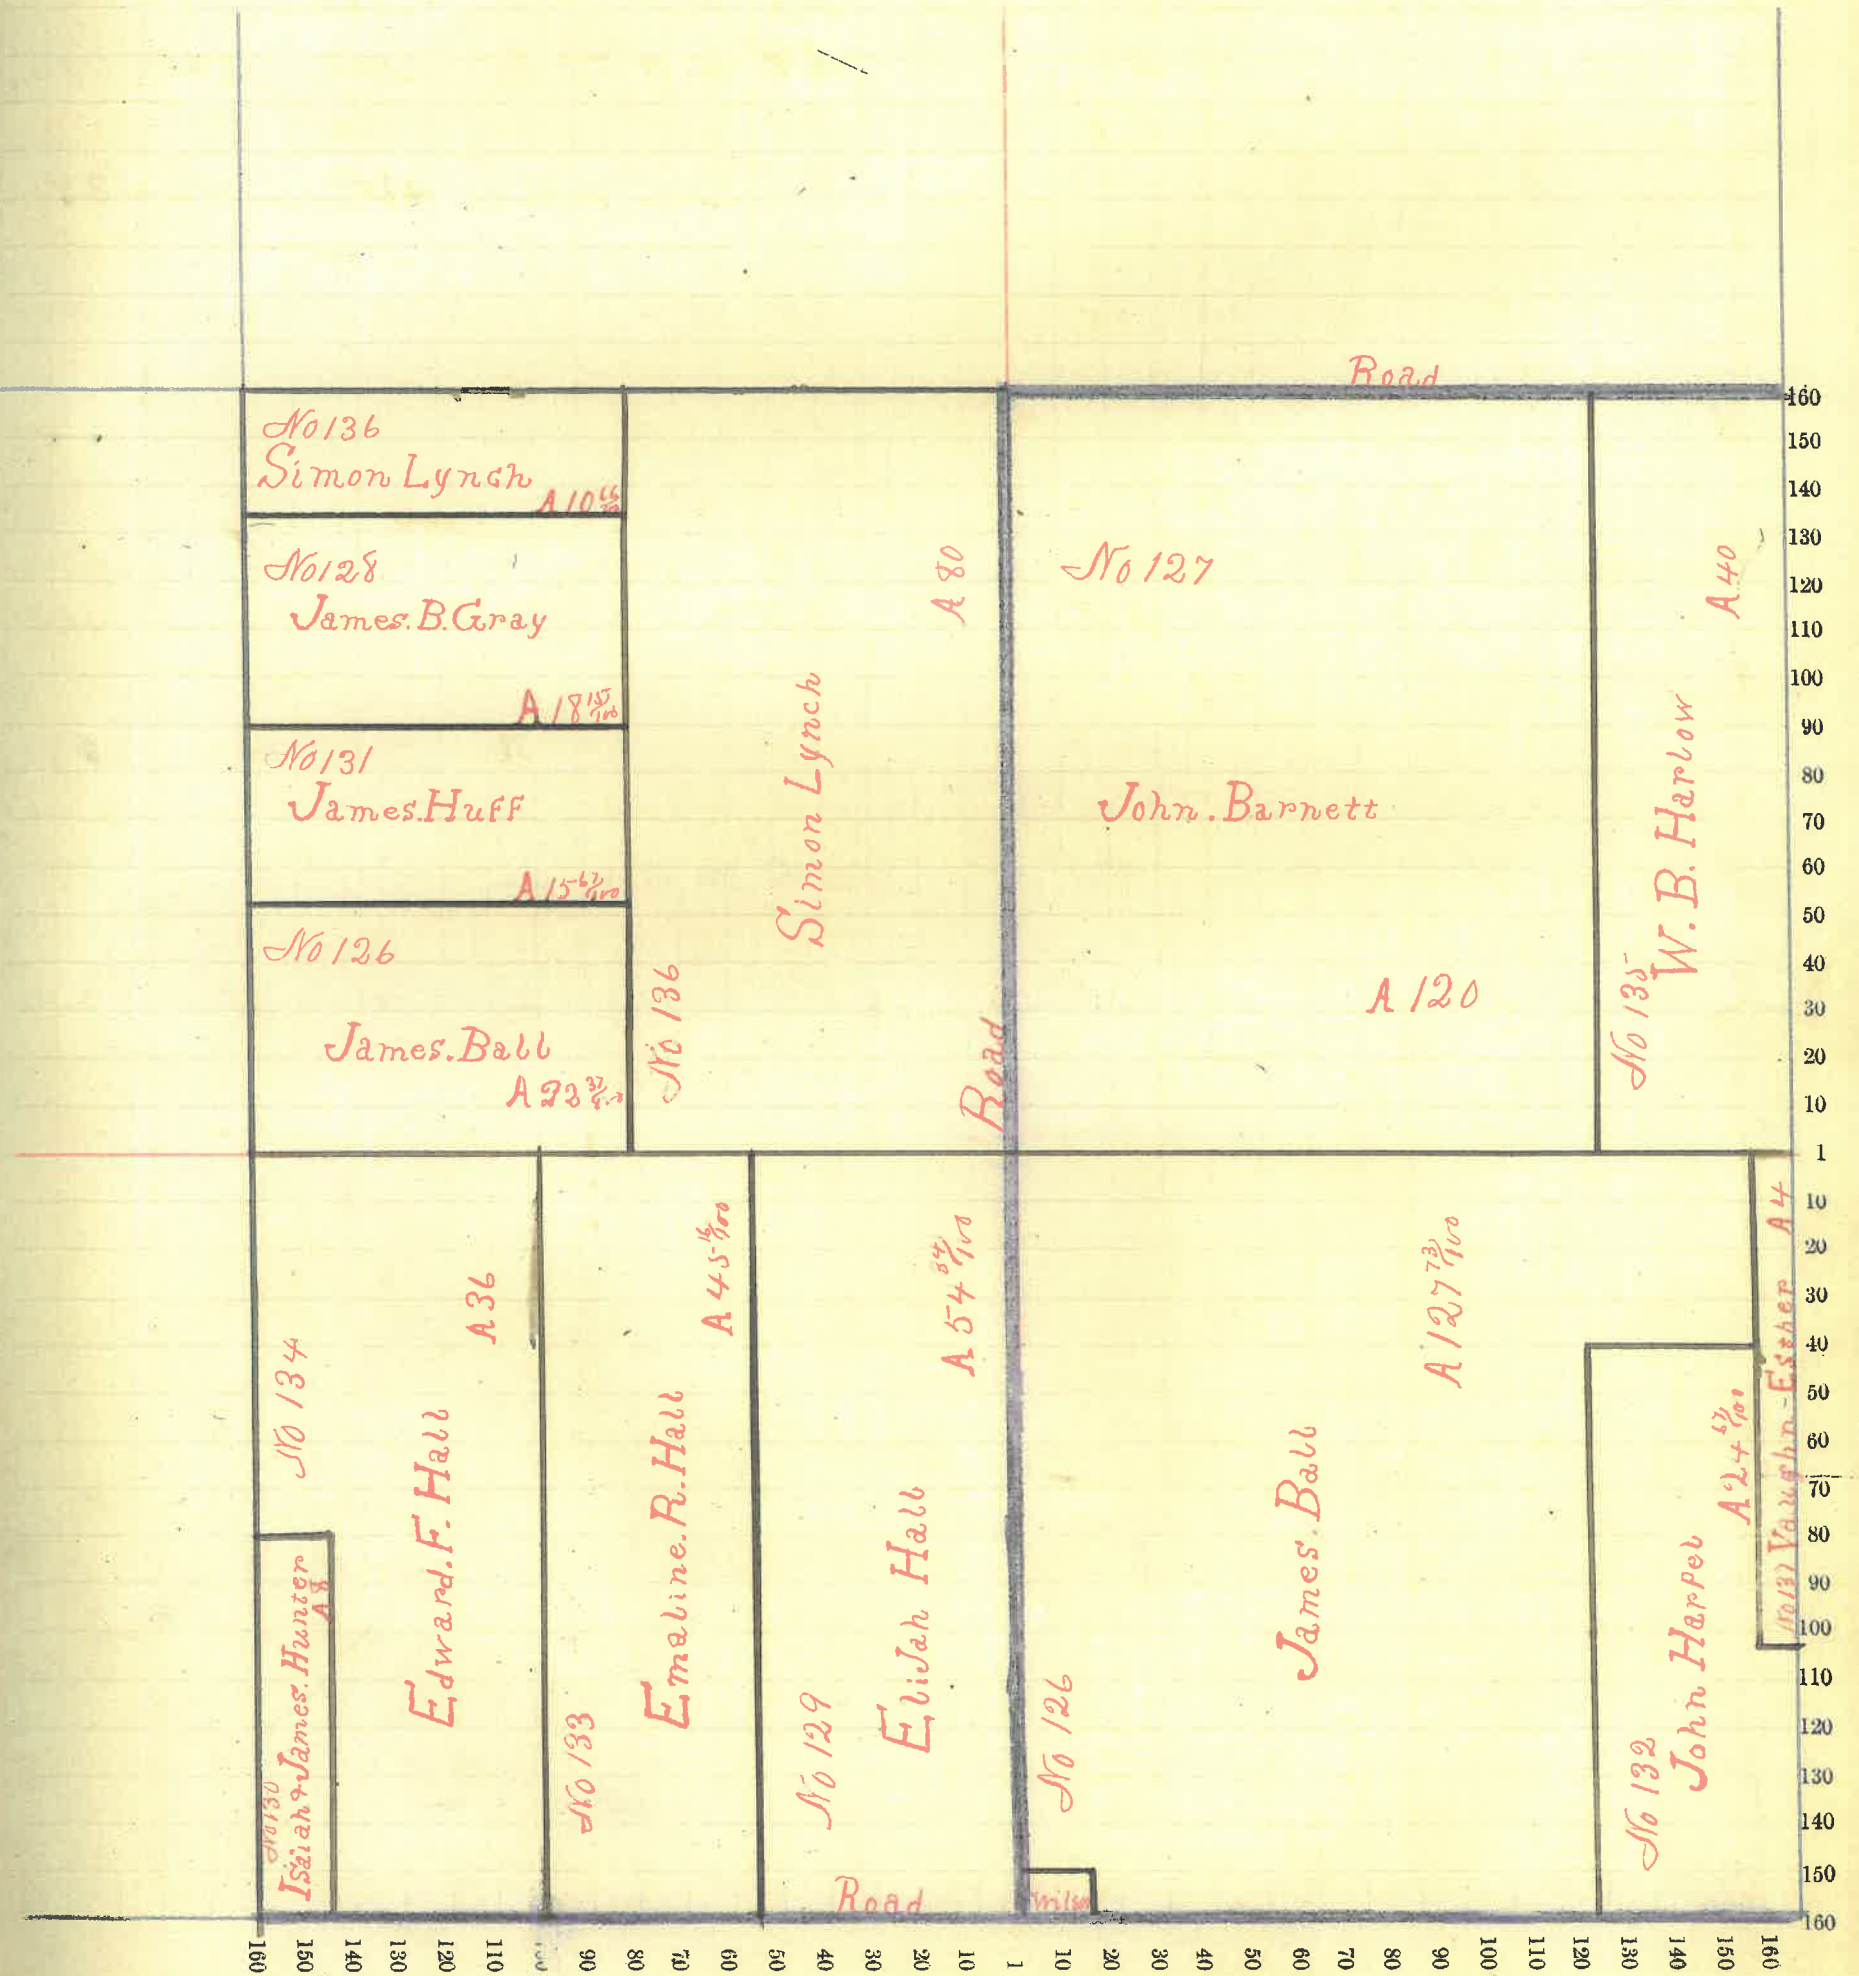 Road
No 136
Simon Lynch
A 10 66/100
No 128
James. B. Gray
A 18 15/100
No 131
James. Huff
A 15 67/100
No 126
James. Ball
A 22 37/100
No 136
Simon Lynch
A 80
Road
No 127
John. Barnett
A 120
No 135
W. B. Harlow
A 40
160
150
140
130
120
110
100
90
80
70
60
50
40
30
20
10
1
10
20
30
40
50
60
70
80
90
100
110
120
130
140
150
160
No 134
Edward. F. Hall
A 36
No 130
Isaiah & James. Hunter
A 8
No 133
Emaline. R. Hall
A 45 16/100
No 129
Elijah Hall
A 54 54/100
Road
No 126
James. Ball
A 127 73/100
Wilson
No 132
John Harper
A 24 67/100
No 137 Vaughn - Esther A 4
160
150
140
130
120
110
90
80
70
60
50
40
30
20
10
1
10
20
30
40
50
60
70
80
90
100
110
120
130
140
150
160